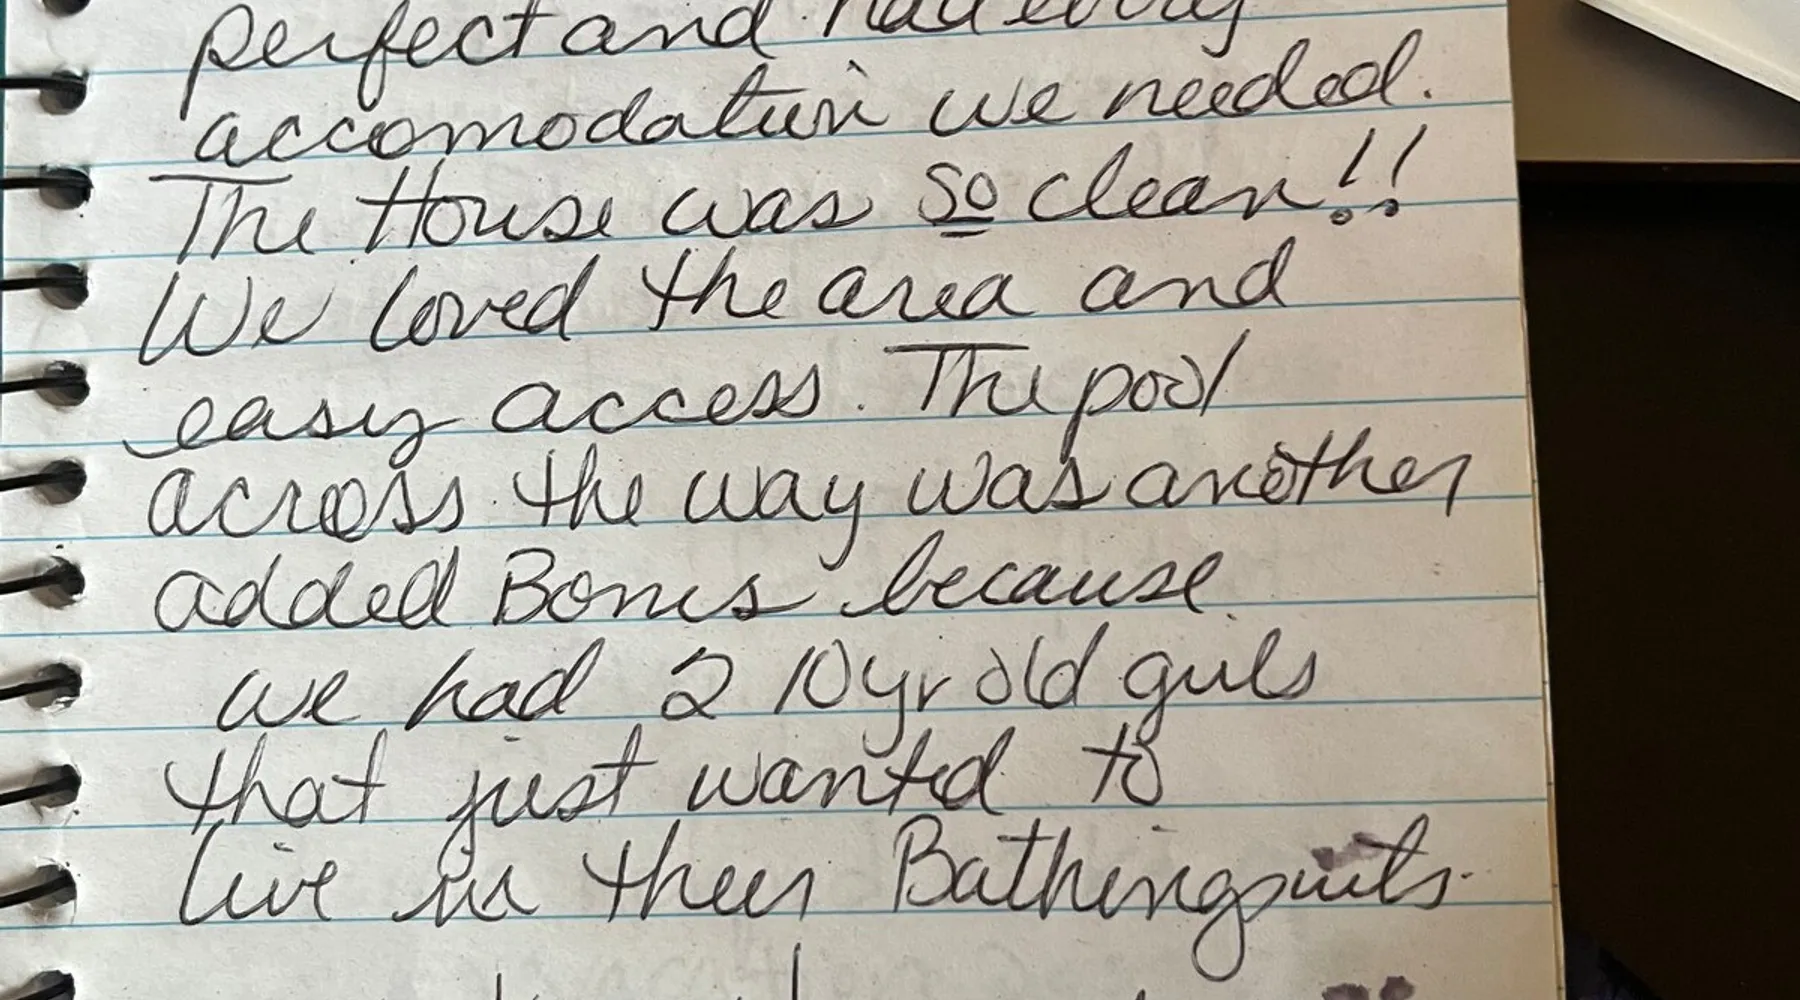 perfect and had every
accomodation we needed.
The House was so clean!!
We loved the area and
easy access. The pool
across the way was another
added Bonus because
we had 2 10 yr old girls
that just wanted to
live in their Bathingsuits.